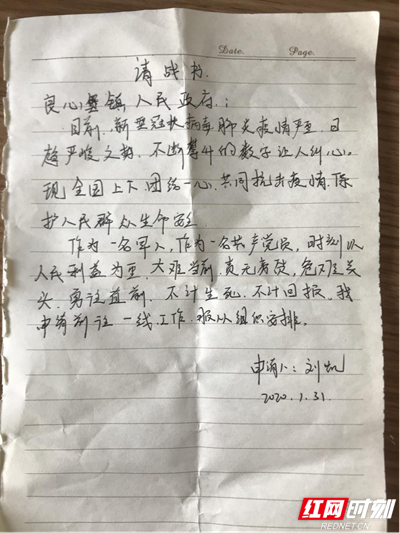 Date.   Page.
请战书.
良心堡镇人民政府:
目前,新型冠状病毒肺炎疫情严重,日
趋严峻之势,不断攀升的数字让人纠心。
现全国上下团结一心,共同抗击疫情,保
护人民群众生命安全
作为一名军人,作为一名共产党员,时刻以
人民利益为重,大难当前,责无旁贷,危难关
头,勇往直前,不计生死,不计回报。我
申请前往一线工作,服从组织安排。
申请人:刘凯
2020.1.31.
红网时刻
REDNET.CN